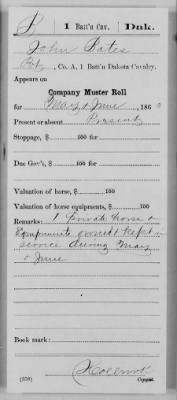 1 Batt'n Cav. Dak.
John Bates
Pvt, Co. A, 1 Batt'n Dakota Cavalry.
Appears on
Company Muster Roll
for May & June, 186
Present or absent Present
Stoppage, $ 100 for
Due Gov't, $ 100 for
Valuation of horse, $ 100
Valuation of horse equipments, $ 100
Remarks: 1 Private horse &
Equipments owned & kept in
service during May
& June
Book mark:
(358) Copyist.